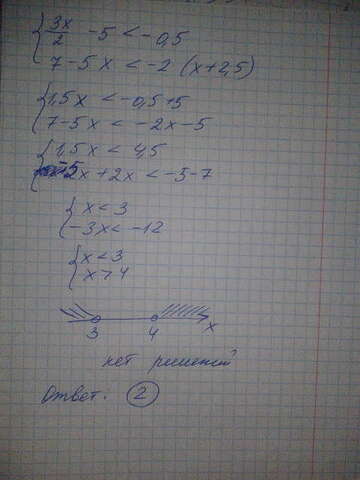 3x/2 - 5 < -0,5
7-5x < -2 (x+2,5)
1,5x < -0,5+5
7-5x < -2x-5
1,5x < 4,5
-5x+2x < -5-7
x < 3
-3x < -12
x < 3
x > 4
3 4 x
нет решений
Ответ. 2